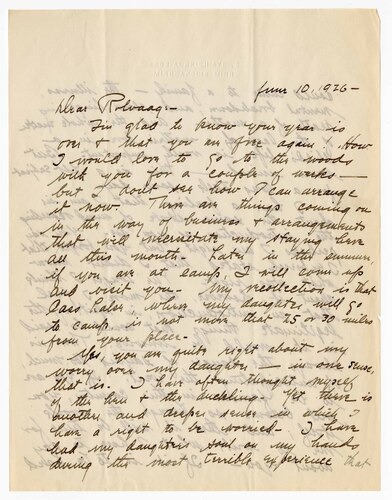 June 10, 1926-
Dear Rolvaag:-
I'm glad to know your year is
over & that you are free again! How
I would love to go to the woods
with you for a couple of weeks—
but I don't see how I can arrange
it now. There are things coming on
in the way of business & arrangements
that will necessitate my staying here
all this month. Later in the summer,
if you are at camp, I will come up
and visit you. My recollection is that
Cass Lake, where my daughter will go
to camp, is not more that 25 or 30 miles
from your place.
Yes, you are quite right about my
worry over my daughter — in one sense,
that is. I have often thought myself
of the hen & the duckling. Yet there is
another and deeper sense in which I
have a right to be worried. I have
had my daughter's soul on my hands
during the most terrible experience that